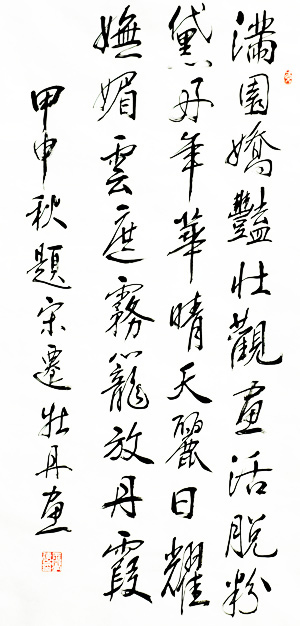 滿園嬌豔壯觀畫活脫粉
黛好年華晴天麗日耀
嫵媚雲遮霧籠放丹霞
甲申秋題宋遷牡丹畫